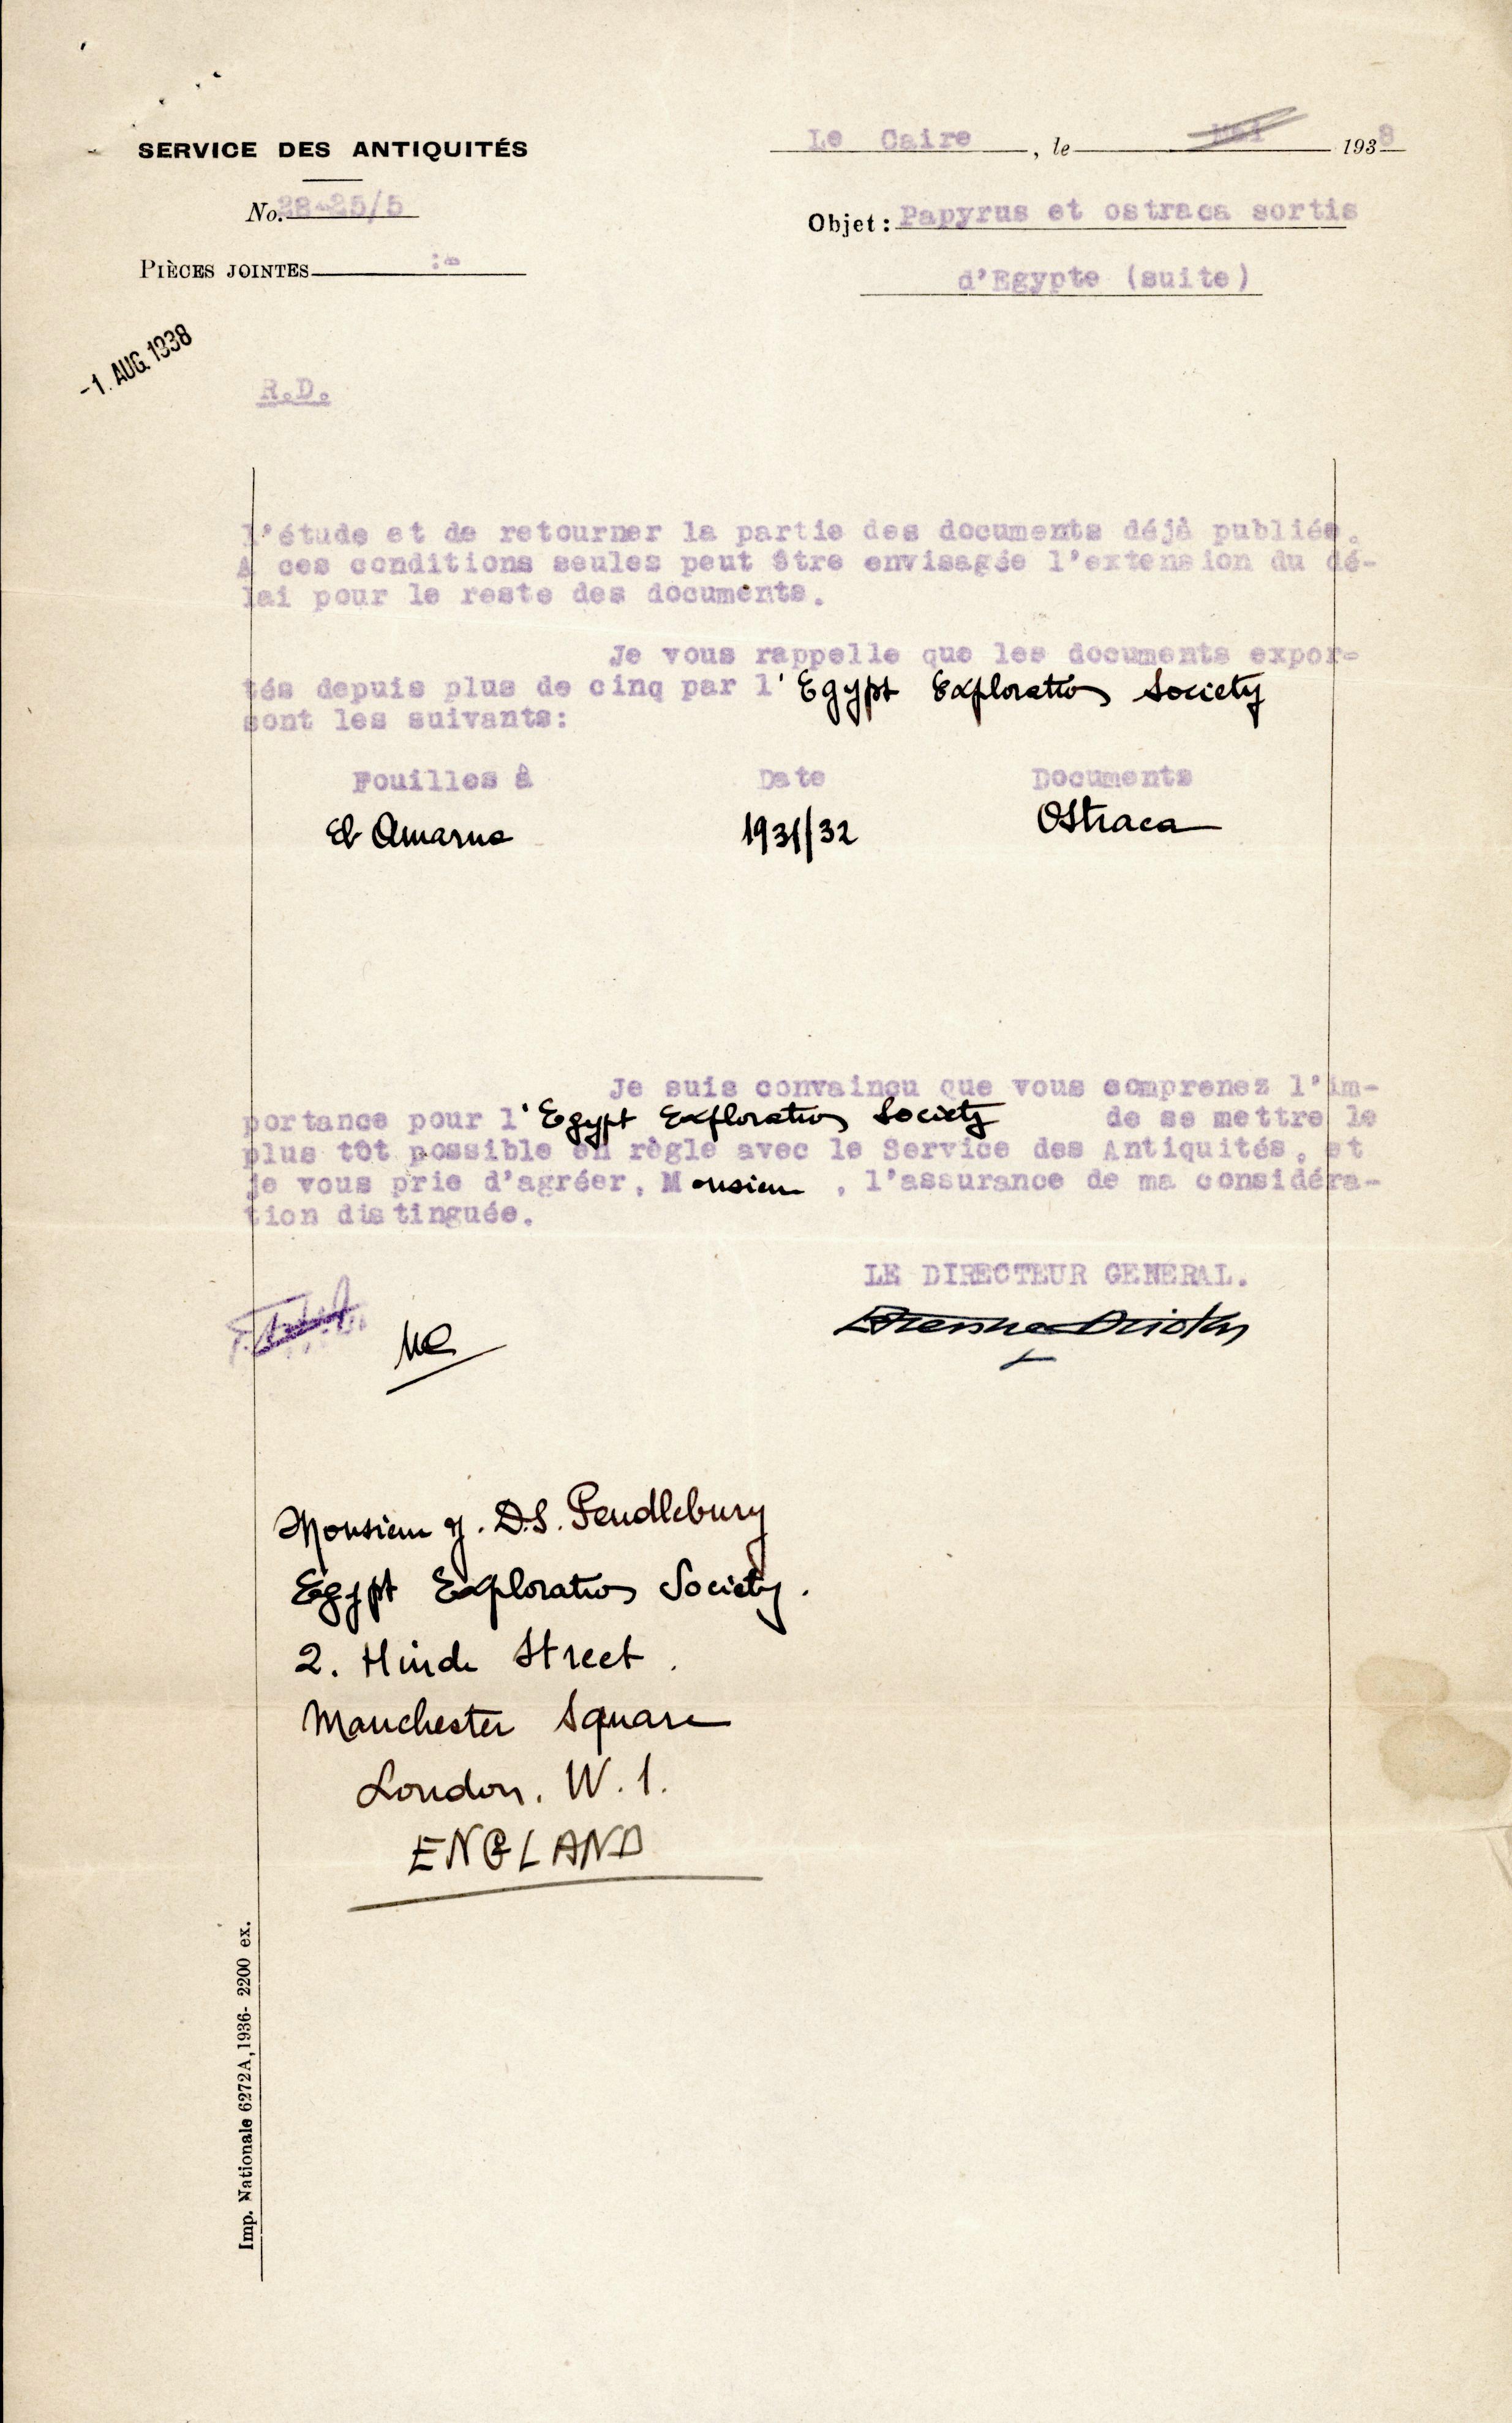 SERVICE DES ANTIQUITÉS
Le Caire, le Mai 1938
No. 28-25/5
Objet: Papyrus et ostraca sortis
d'Egypte (suite)
PIÈCES JOINTES :-
-1. AUG. 1938
R.D.
l'étude et de retourner la partie des documents déjà publiée.
A ces conditions seules peut être envisagée l'extension du dé-
lai pour le reste des documents.
Je vous rappelle que les documents expor-
tés depuis plus de cinq par l'Egypt Exploration Society
sont les suivants:
Fouilles à Date Documents
El Amarna 1931/32 Ostraca
Je suis convaincu que vous comprenez l'im-
portance pour l'Egypt Exploration Society de se mettre le
plus tôt possible en règle avec le Service des Antiquités, et
je vous prie d'agréer, Monsieur, l'assurance de ma considéra-
tion distinguée.
LE DIRECTEUR GENERAL.
Etienne Drioton
Monsieur J. D.S. Pendlebury
Egypt Exploration Society.
2. Hinde Street.
Manchester Square
London. W. 1.
ENGLAND
Imp. Nationale 6272A,1936- 2200 ex.